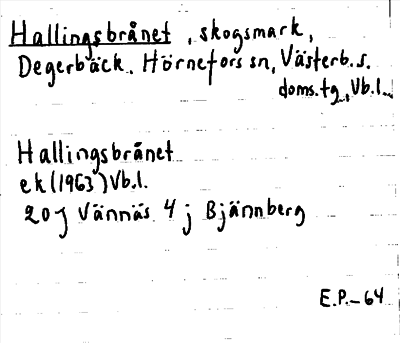 Hallingsbrånet, skogsmark,
Degerbäck. Hörnefors sn, Västerb. s.
doms. tg, Vb. l.
Hallingsbrånet
ek (1963) Vb. l.
20 J Vännäs 4 j Bjännberg
E.P.–64